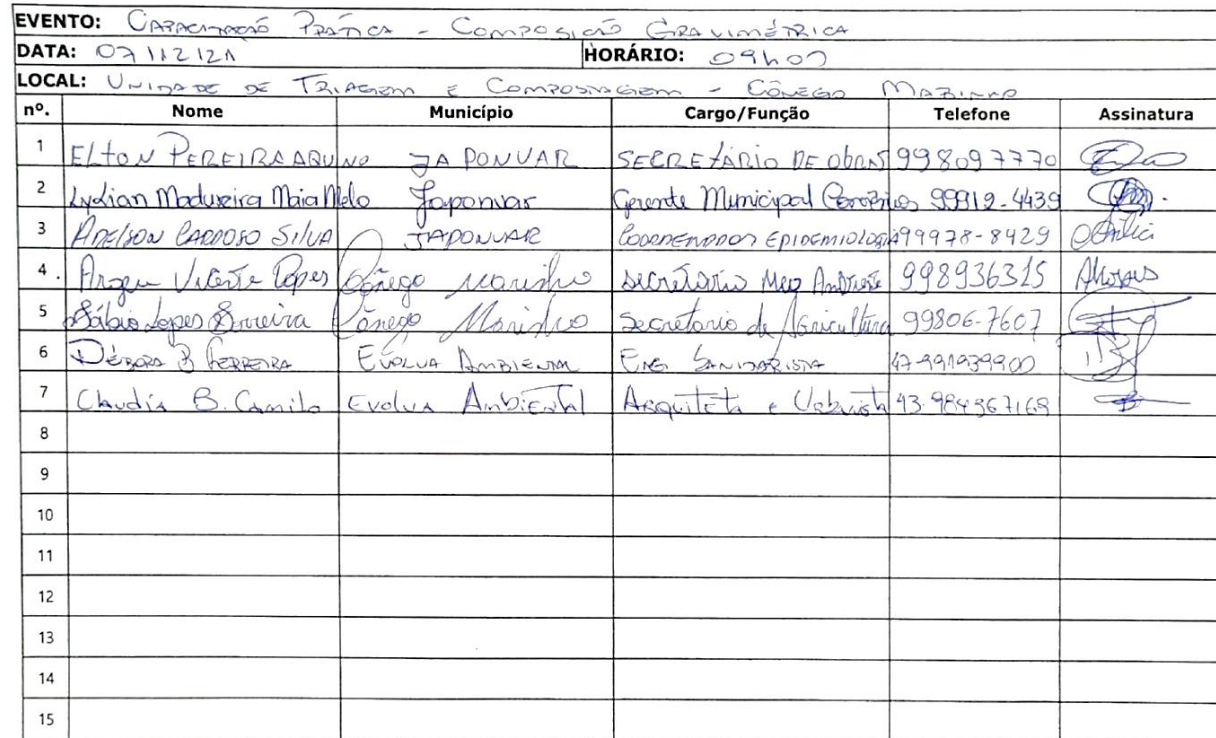 EVENTO: Capacitação Prática - Composição Gravimétrica
DATA: 07/12/21 HORÁRIO: 09h00
LOCAL: Unidade de Triagem e Compostagem - Cônego Marinho
nº. Nome Município Cargo/Função Telefone Assinatura
1 Elton Pereira Aquino Japonvar Secretário de Obras 998097770
2 Lydian Madureira Maia Melo Japonvar Gerente Municipal 99912-4439
3 Adelson Cardoso Silva Japonvar Coordenador Epidemiologia 99978-8429
4 Vicente Lopes Cônego Marinho Secretario Meo Ambiente 998936315
5 Fábio Lopes Cônego Marinho Secretario de Agricultura 99806-7607
6 Débora B Ferreira Evolua Ambiental Eng Sanitarista 47-991939900
7 Claudia B. Camilo Evolua Ambiental Arquiteta e Urbanista 43.984367169
8
9
10
11
12
13
14
15